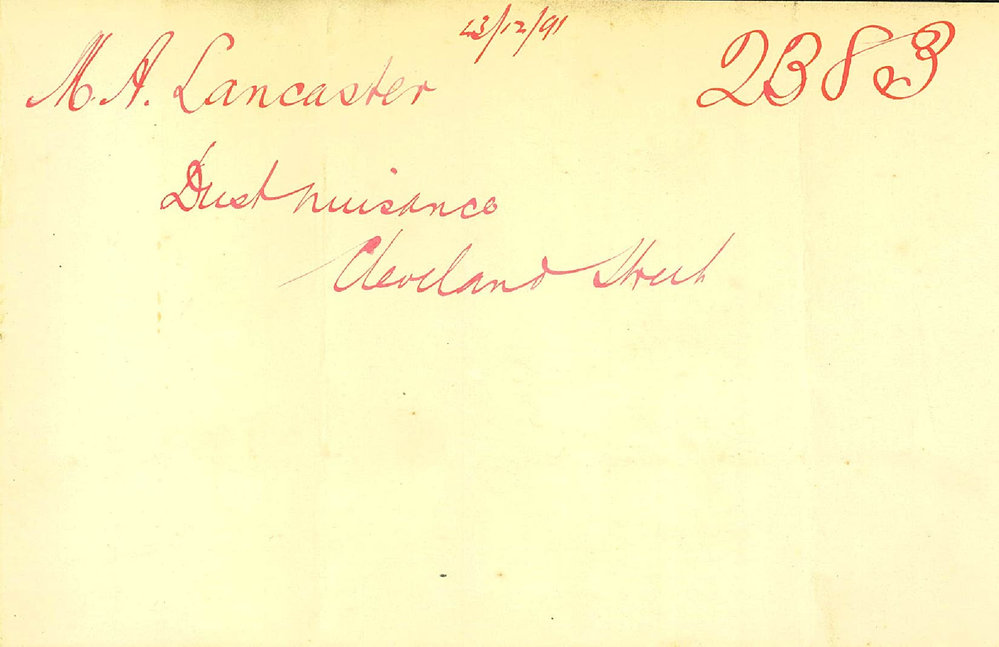 23/12/91
2383
M. A. Lancaster
Dust nuisance
Cleveland Street